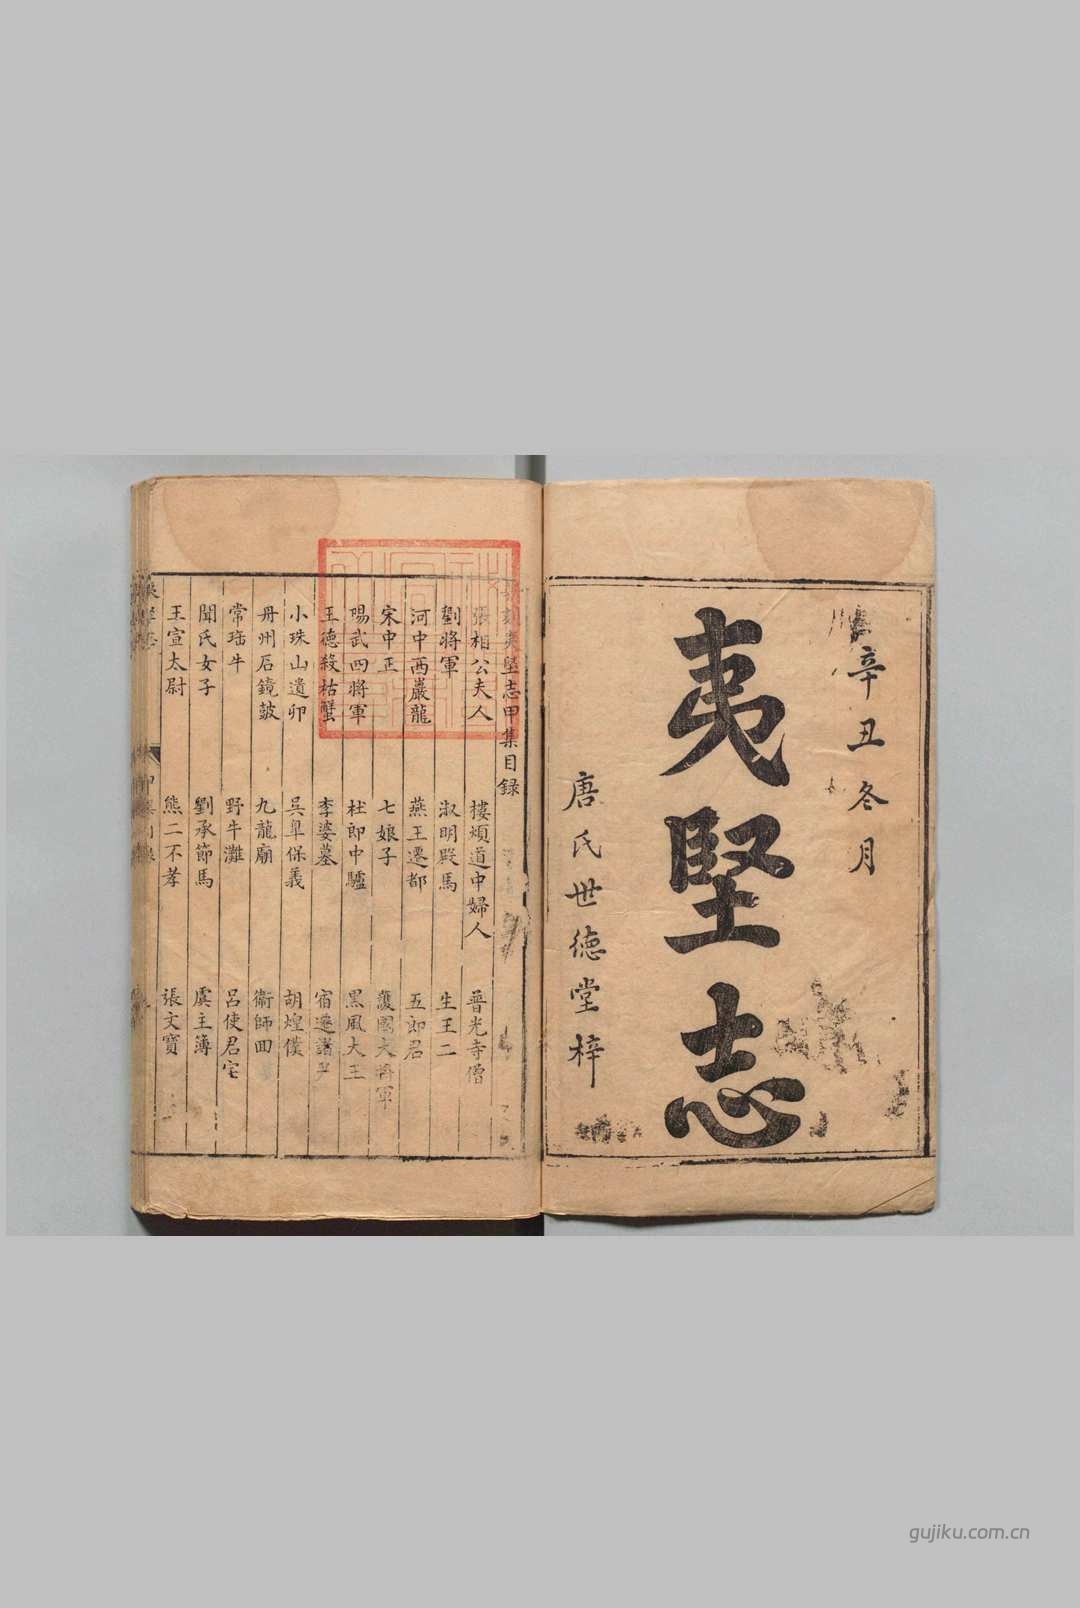 辛丑冬月
夷堅志
唐氏世德堂梓
刻夷堅志甲集目錄
張相公夫人 樓煩道中婦人 普光寺僧
劉將軍 淑明殿馬 生王二
河中西巖龍 燕王遷都 五郎君
宋中正 七娘子 護國大將軍
陽武四將軍 杜郎中驢 黑風大王
王德 枯蟹 李婆墓 宿遷諸尹
小珠山遺卯 吳皐保義 胡煌僕
丹州石鏡鼓 九龍廟 衛師回
常瑤牛 野牛灘 呂使君宅
聞氏女子 劉承節馬 虞主簿
王宣太尉 熊二不孝 張文寶
gujiku.com.cn